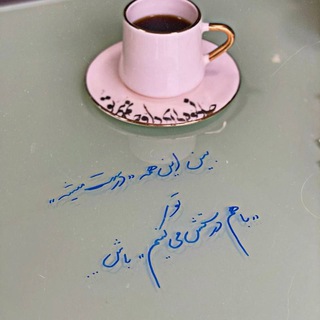 بین این همه "درست میشه"
تو
"با هم درستش می‌کنیم" باش...